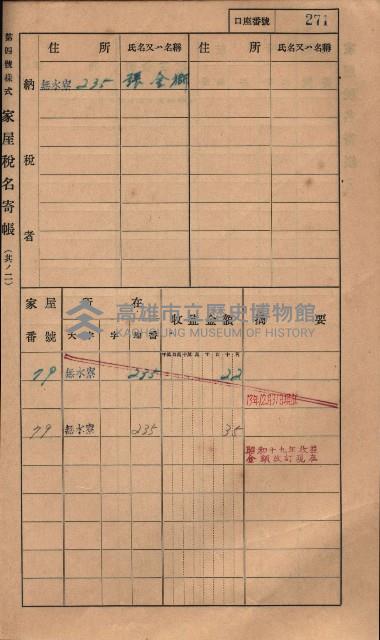 口座番號 271
第四號樣式 家屋稅名寄帳 (其ノ二)
納稅者
住所 氏名又ハ名稱 住所 氏名又ハ名稱
無水寮 235 張金獅
家屋番號 所在 收益金額 摘要
大字 字 地番
79 無水寮 235 22
79 無水寮 235 35
昭和十九年收益
金額改訂現在
高雄市立歷史博物館
KAOHSIUNG MUSEUM OF HISTORY